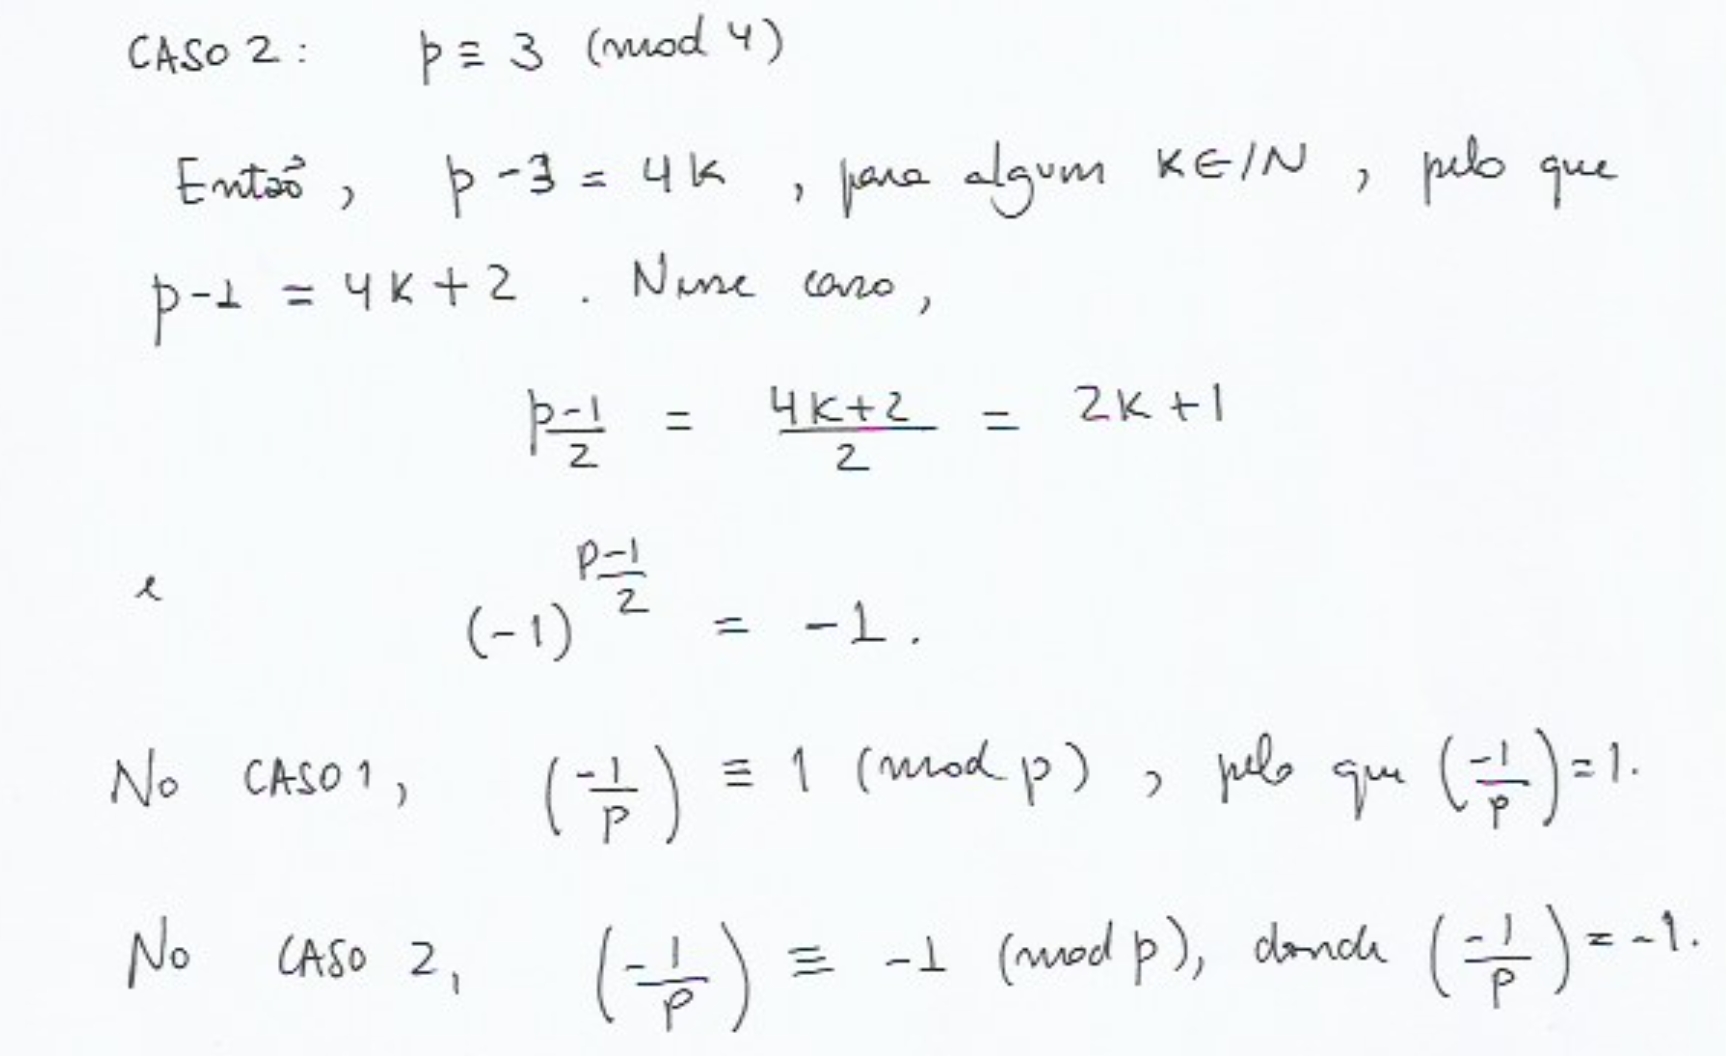 CASO 2: p ≡ 3 (mod 4)
Então, p-3 = 4k, para algum K∈ℕ, pelo que
p-1 = 4K+2. Nesse caso,
\frac{p-1}{2} = \frac{4K+2}{2} = 2K+1
e (-1)^{\frac{p-1}{2}} = -1.
No CASO 1, (\frac{-1}{p}) ≡ 1 (mod p), pelo que (\frac{-1}{p}) = 1.
No CASO 2, (\frac{-1}{p}) ≡ -1 (mod p), donde (\frac{-1}{p}) = -1.